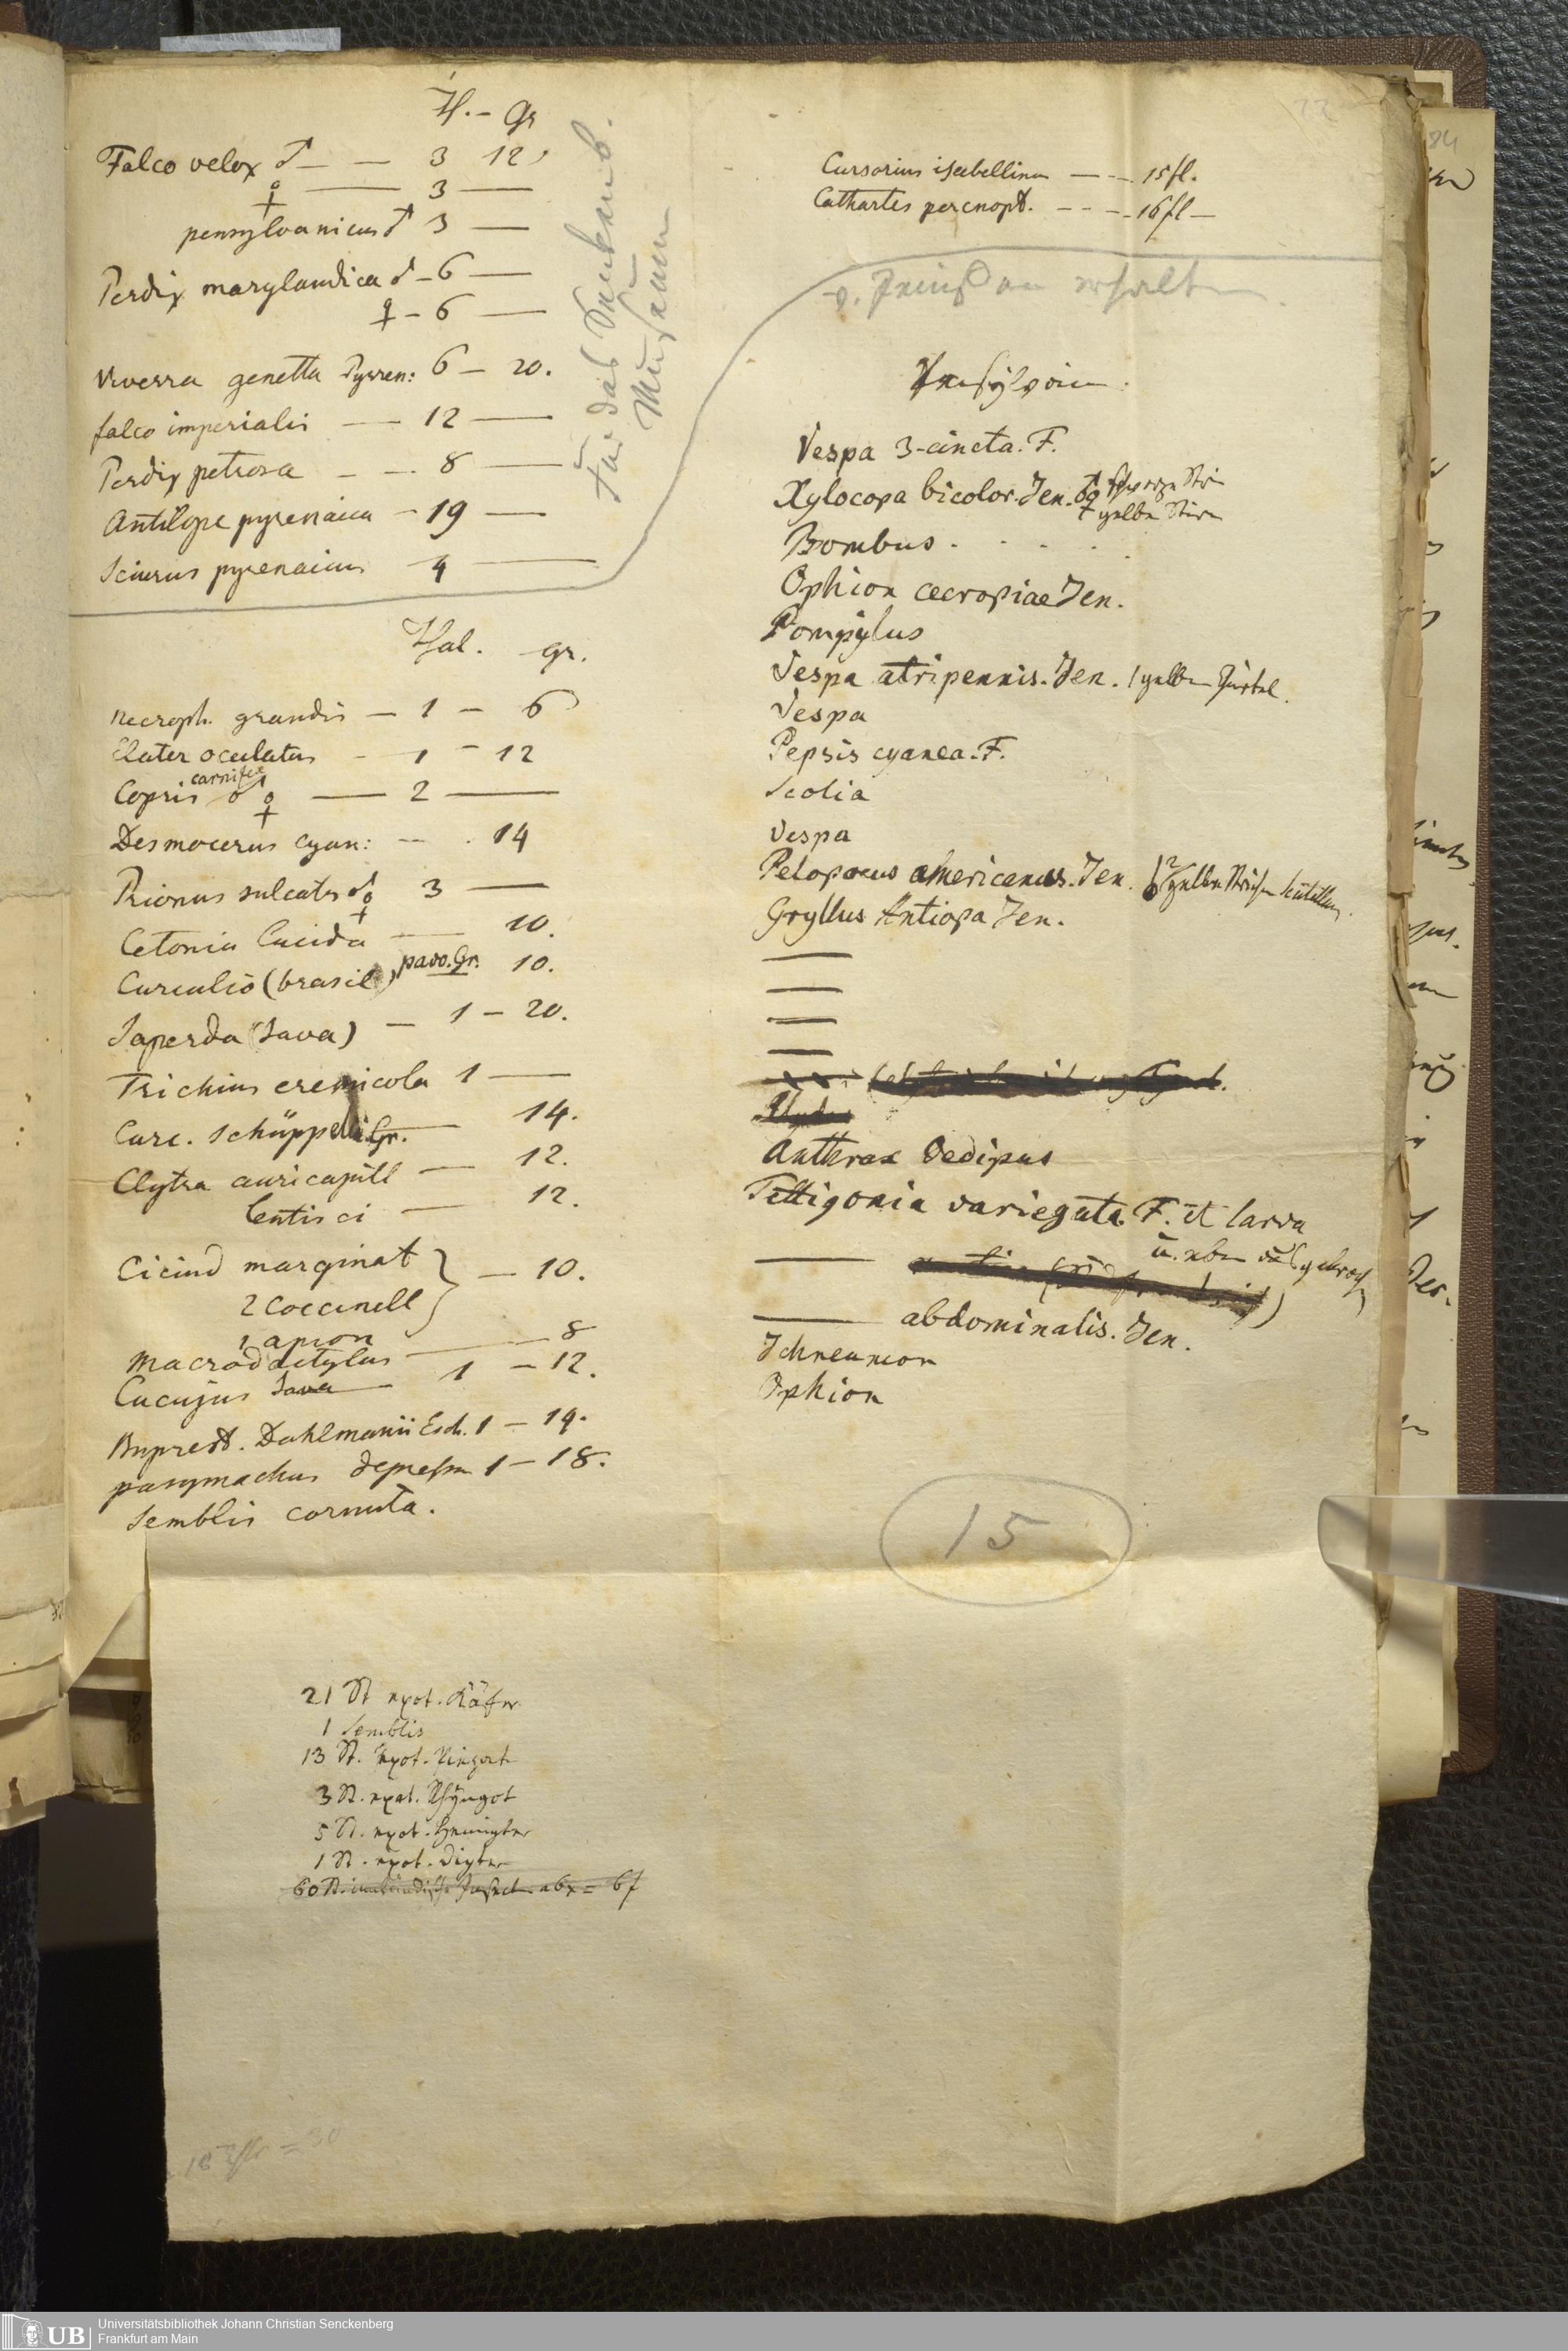 Th. - Gr
Falco velox ♂ — — 3 12
♀ — 3 —
pensylvanicus ♂ 3 —
Perdix marylandica ♂ - 6 —
♀ - 6 —
Viverra genetta Pyren: 6 — 20.
falco imperialis — 12 —
Perdix petrosa — - 8 —
Antilope pyrenaica - 19 —
Sciurus pyrenaicus 4 —
Für das Senckenb.
Museum
Thal. gr.
Necroph. grandis — 1 — 6
Elater oculatus - 1 - 12
carnifex
Copris ♂ ♀ — 2 —
Desmocerus cyan: -- . 14
Prionus sulcatus ♂ ♀ 3 —
Cetonia lucida — 10.
Curculio (brasil) pavo. Gr. 10.
Saperda (Java) — 1 — 20.
Trichius eremicola 1 —
Curc. Schüppelii. Gr. — 14.
Clytra auricapill — 12.
lentisci — 12.
Cicind marginat } — 10.
2 Coccinell
1 apion
Macrodactylus — 8
Cucujus Java — 1 — 12.
Buprest. Dahlmanii Esch. 1 — 14.
pasymachus depressus 1 — 18.
Semblis cornuta.
Cursorius isabellinus — - - 15 fl.
Cathartes percnopt. - - - 16 fl —
v. erhalten
Vespa 3-cincta. F.
Xylocopa bicolor. Jen. ♂ schwarze Stirn
♀ gelbe Stirn
Bombus . . . . .
Ophion cecropiae Jen.
Pompylus
Vespa atripennis. Jen. 1 gelben Gürtel.
Vespa
Pepsis cyanea. F.
Scolia
Vespa
Pelopoeus americanus. Jen. 2 gelbe Scutellum
Gryllus Antiopa Jen.
—
—
—
—
Anthrax Oedipus
Tettigonia variegata. F. et larva
— abdominalis. Jen.
Ichneumon
Ophion
15
21 St exot. Käfer
1 Semblis
13 St. exot.
3 St. exot. Rhÿngot
5 St. exot. Hemipter
1 St. exot. Dipter
60 St. inländische Insect. abx = 6f
Universitätsbibliothek Johann Christian Senckenberg
Frankfurt am Main
UB